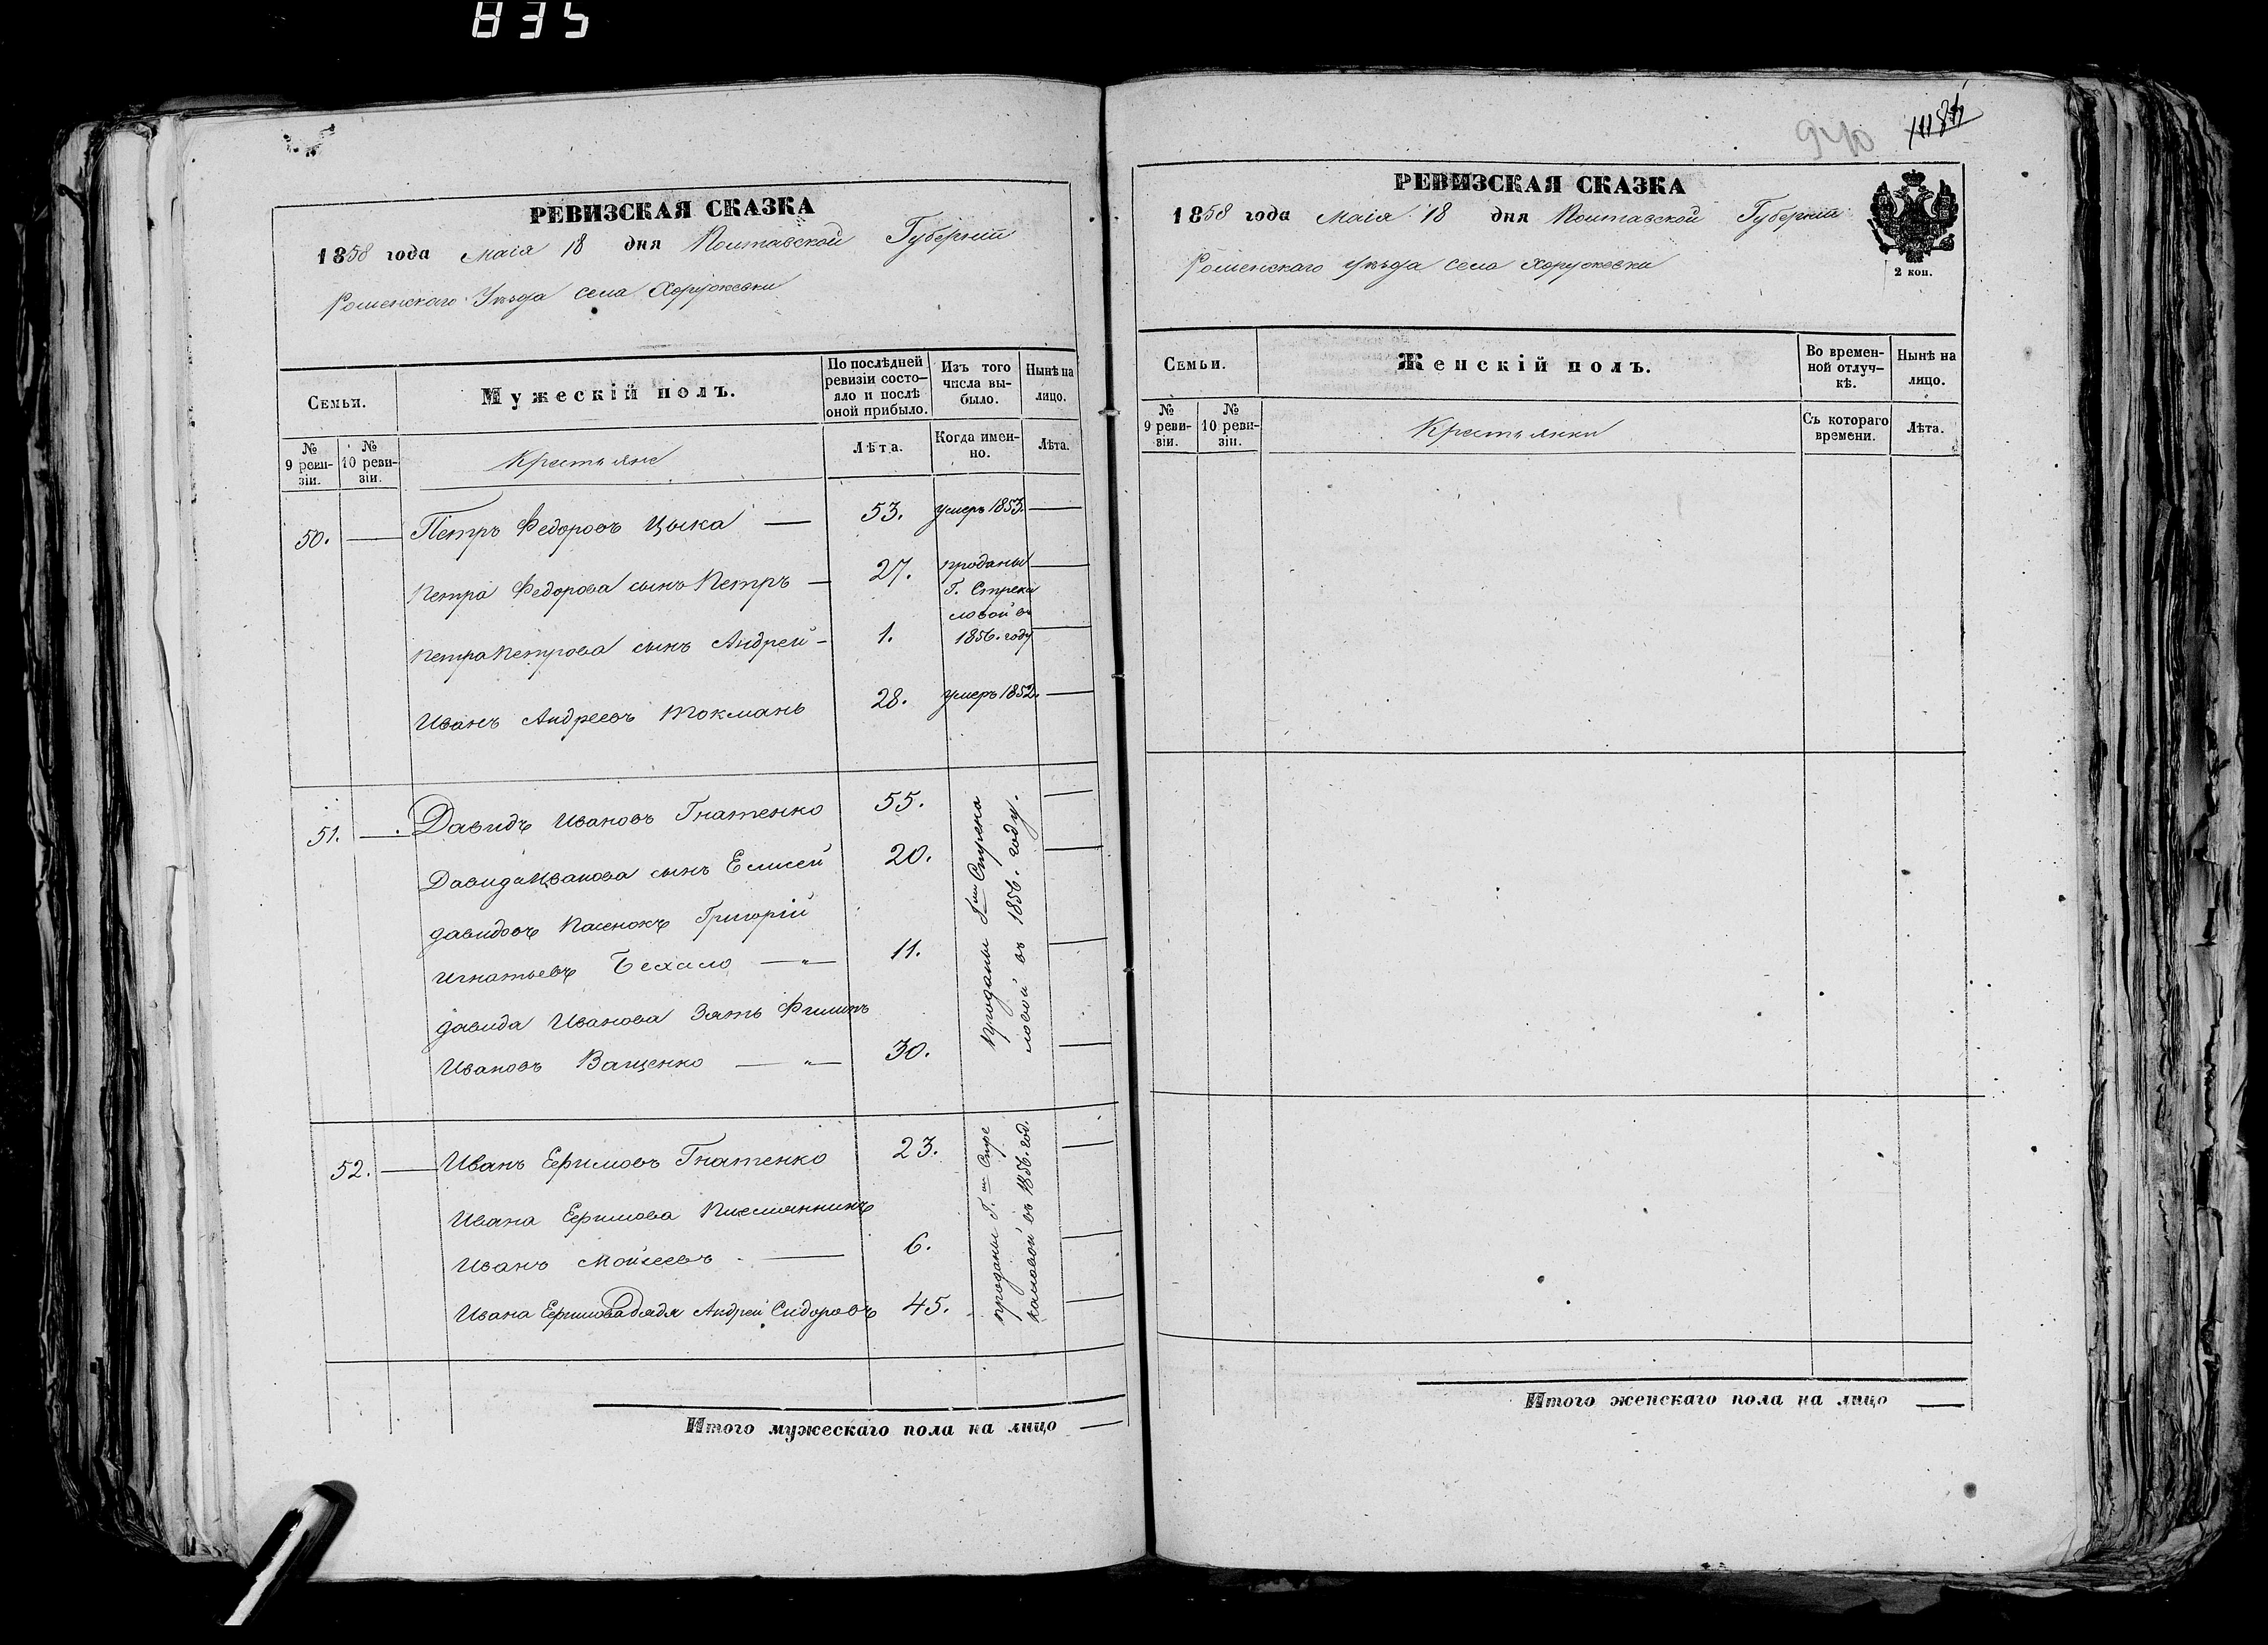 835
РЕВИЗСКАЯ СКАЗКА
1858 года маія 18 дня Полтавской Губерніи
Роменскаго Уѣзда села Хоружевки
Семьи.
Мужескій полъ.
По послѣдней ревизіи состо-
яло и послѣ оной прибыло.
Изъ того числа вы-
было.
Нынѣ на лицо.
№ 9 реви-
зіи.
№ 10 реви-
зіи.
Крестьяне
Лѣта.
Когда имен-
но.
Лѣта.
50. — Петръ Федоровъ Цыка — 53. умеръ 1853. —
Петра Федорова сынъ Петръ — 27. проданы —
Г. Стрека
ловой въ
Петра Петрова сынъ Андрей - 1. 1856. году —
Иванъ Андреевъ Токмань 28. умеръ 1852. —
51. — Давидъ Ивановъ Гнатенко 55. —
Давида Иванова сынъ Елисей 20. —
Давидовъ пасенокъ Григорій
Игнатьевъ — " — 11. —
Давида Иванова зять Филипъ
Ивановъ Ващенко — " — 30. —
проданы Стрека
ловой въ 1856. году.
52. — Иванъ Ефимовъ Гнатенко 23. —
Ивана Ефимова племянникъ
Иванъ Мойсеевъ — 6. —
Ивана Ефимова дядя Андрей Сидоровъ 45. —
проданы Г. Стре
каловой въ 1856. год.
Итого мужескаго пола на лицо —
940
РЕВИЗСКАЯ СКАЗКА
1858 года маія 18 дня Полтавской Губерніи
Роменскаго Уѣзда села Хоружевки
2 коп.
Семьи.
Женскій полъ.
Во времен-
ной отлуч-
кѣ.
Нынѣ на лицо.
№ 9 реви-
зіи.
№ 10 реви-
зіи.
Крестьянки
Съ котораго времени.
Лѣта.
Итого женскаго пола на лицо —